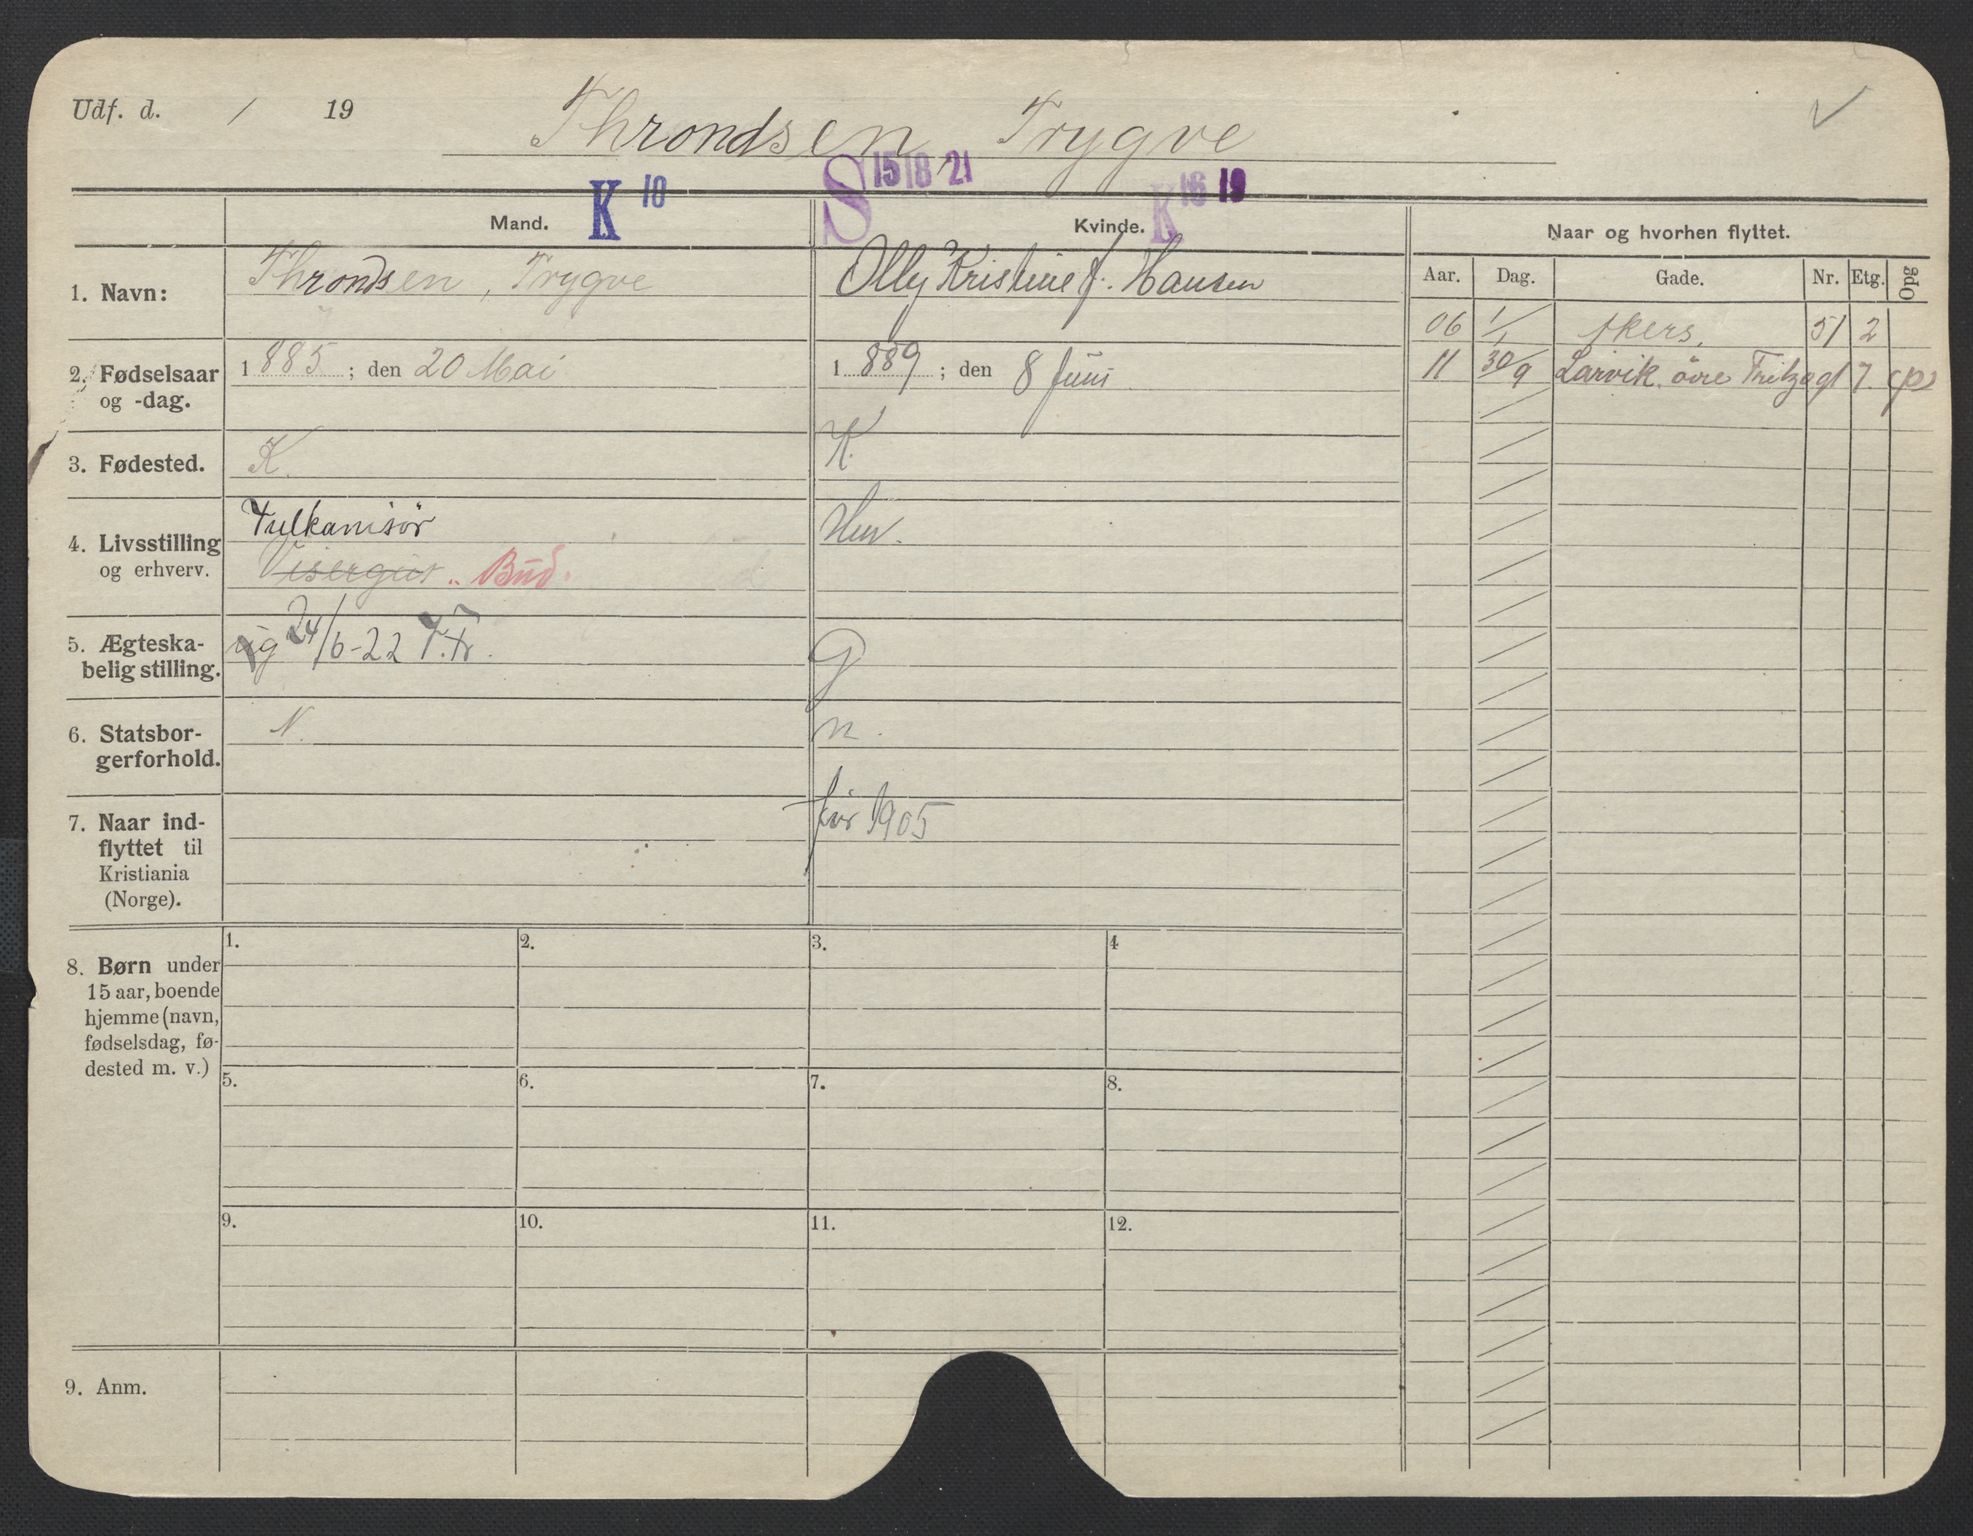 Udf. d. / 19 Throndsen Trygve
K 10 S 15 18 21 K 16 19
Mand. Kvinde. Naar og hvorhen flyttet.
Aar. Dag. Gade. Nr. Etg. Opg
1. Navn: Throndsen, Trygve Olly Kristine f. Hansen
06 1/1 Akers. 51 2
2. Fødselsaar 1885; den 20 Mai 1889; den 8 Juni
og -dag.
11 30/9 Larvik, övre 7 (p)
3. Fødested. K. K.
4. Livsstilling
og erhverv.
Bud.
5. Ægteska-
belig stilling. ug 24/6-22 G
6. Statsbor-
gerforhold. N. n.
7. Naar ind-
flyttet til
Kristiania
(Norge).
før 1905
8. Børn under
15 aar, boende
hjemme (navn,
fødselsdag, fø-
dested m. v.)
1. 2. 3. 4
5. 6. 7. 8.
9. 10. 11. 12.
9. Anm.